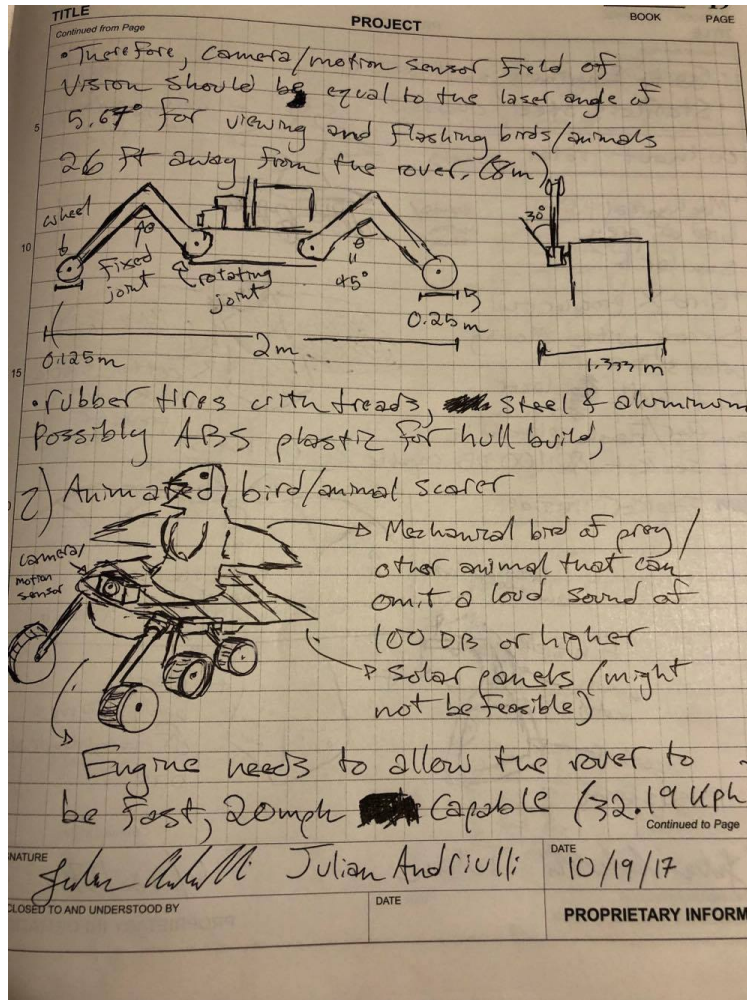 TITLE
PROJECT
BOOK
PAGE
Continued from Page
• Therefore, camera/motion sensor field of
vision should be equal to the laser angle of
5
5.67° for viewing and flashing birds/animals
26 ft away from the rover. (8m)
wheel
θ
θ
30°
10
fixed
joint
rotating
joint
45°
0.25m
0.125m
2m
1.333 m
15
• rubber tires with treads, steel & aluminum
Possibly ABS plastic for hull build,
2) Animated bird/animal scarer
Mechanical bird of prey/
other animal that can
omit a loud sound of
100 DB or higher
camera/
motion
sensor
solar panels (might
not be feasible)
Engine needs to allow the rover to
be fast, 20mph capable (32.19 kph
Continued to Page
NATURE
Julian Andriulli
DATE
10/19/17
CLOSED TO AND UNDERSTOOD BY
DATE
PROPRIETARY INFORM